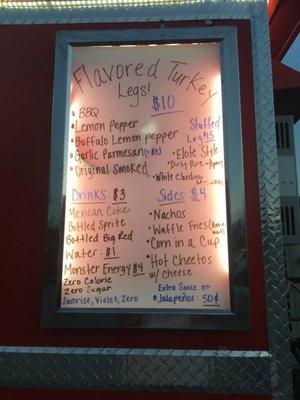 Flavored Turkey
Legs!
$10
• BBQ
• Lemon Pepper
• Buffalo Lemon pepper
• Garlic Parmesan
• Original Smoked
Stuffed
Legs $15
• Elote Style
• Dirty Rice
• White Cheddar
Drinks: $3
Mexican Coke
Bottled Sprite
Bottled Big Red
Water: $1
Monster Energy $4
Zero Calorie
Zero Sugar
Sunrise, Violet, Zero
Sides: $4
• Nachos
• Waffle Fries
• Corn in a Cup
• Hot Cheetos
w/ cheese
Extra Sauce or
• Jalapeños: 50¢